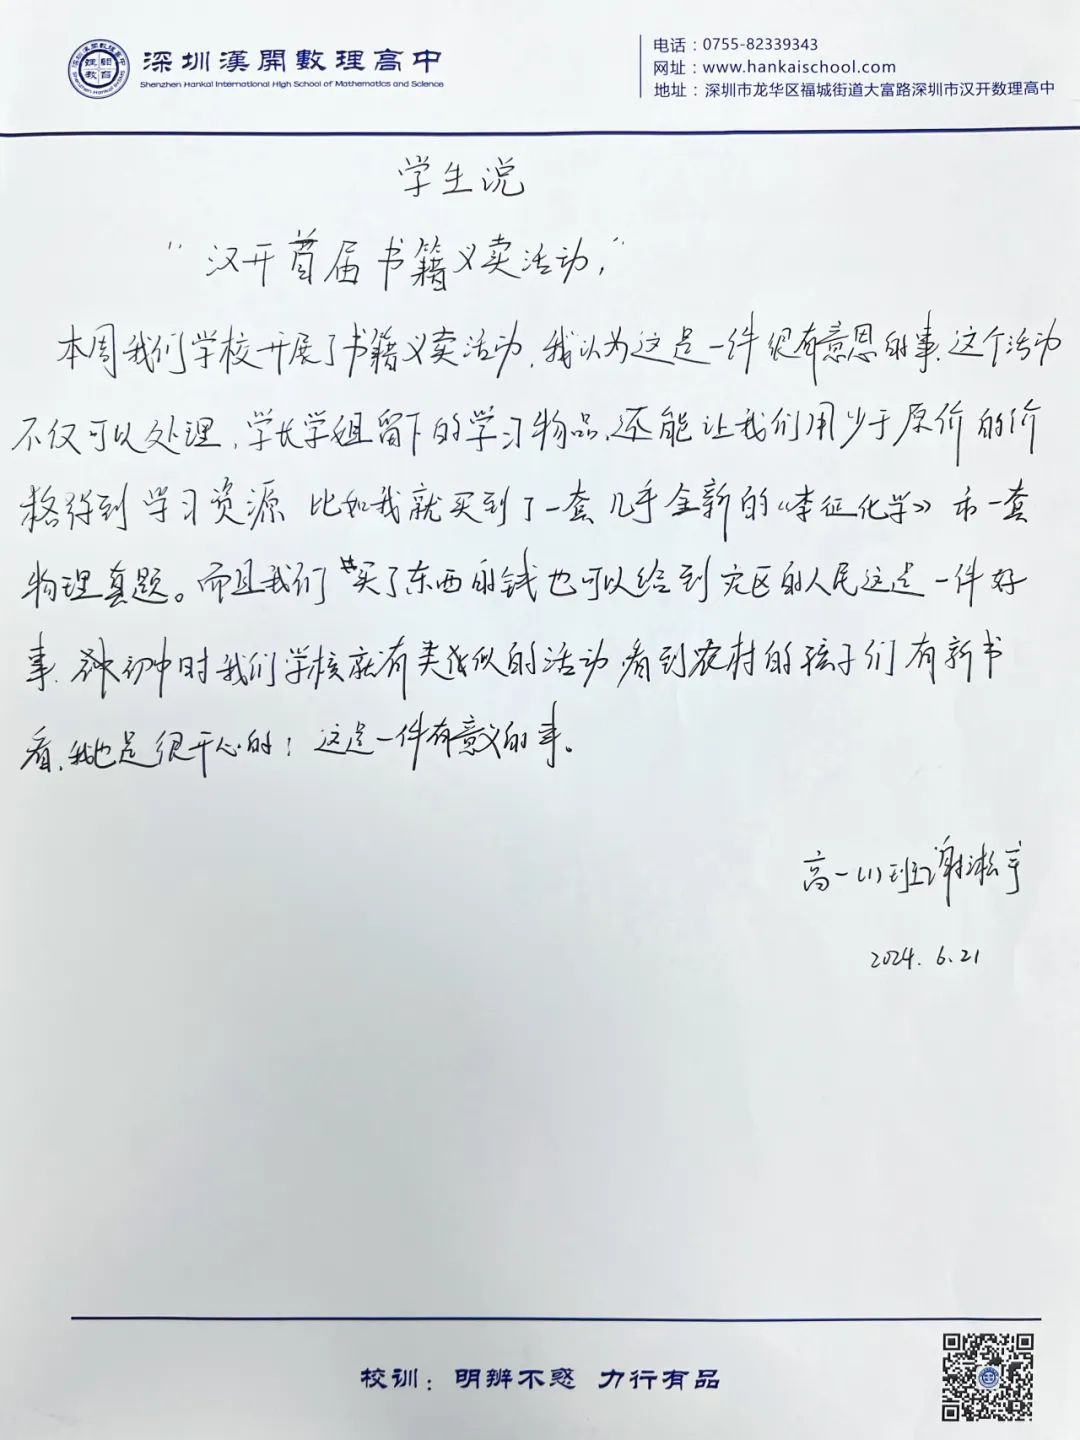 深圳漢開數理高中
Shenzhen Hankai International High School of Mathematics and Science
电话：0755-82339343
网址：www.hankaischool.com
地址：深圳市龙华区福城街道大富路深圳市汉开数理高中
学生说
“汉开首届书籍义卖活动，”
本周我们学校开展了书籍义卖活动，我认为这是一件很有意思的事，这个活动
不仅可以处理，学长学姐留下的学习物品，还能让我们用少于原价的价
格得到学习资源 比如我就买到了一套几乎全新的《李征化学》和一套
物理真题。而且我们买了东西的钱也可以给到灾区的人民这是一件好
事，初中时我们学校就有类似的活动 看到农村的孩子们有新书
看，我也是很开心的；这是一件有意义的事。
高一(1)班谢淞宇
2024. 6.21
校训：明辨不惑 力行有品